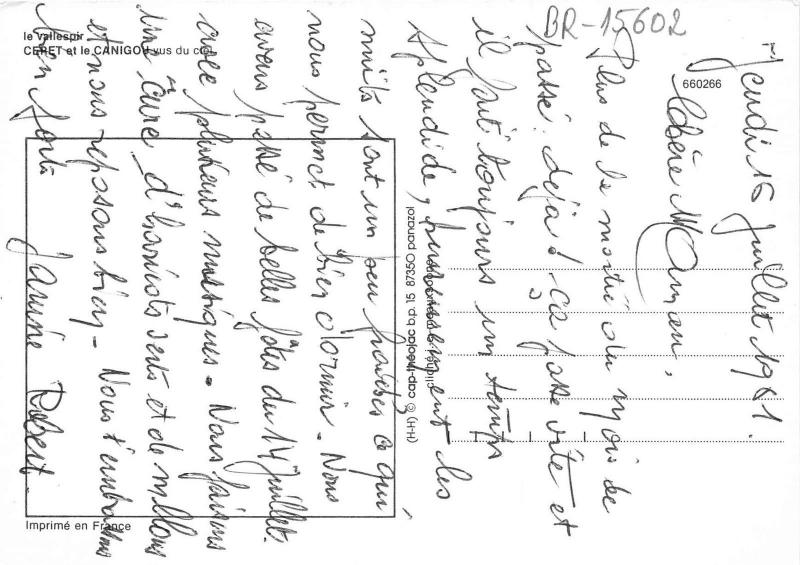 BR-15602
le vallespir
CERET et le CANIGOU vus du ciel
660266
Jeudi 16 Juillet 1981.
Chère Maman,
Plus de la moitié du mois de
passé. déjà! ça passe vite et
il fait toujours un temps
splendide, heureusement les
nuits sont un peu fraîches ce qui
nous permet de bien dormir. Nous
avons passé de belles fêtes du 14 Juillet.
avec plusieurs musiques. Nous faisons
une "cure" d'haricots verts et de melons
et nous reposons bien - Nous t'embrassons
bien fort. Janine Robert.
(H-H) © cap-theojac b.p. 15 87350 panazol
Imprimé en France